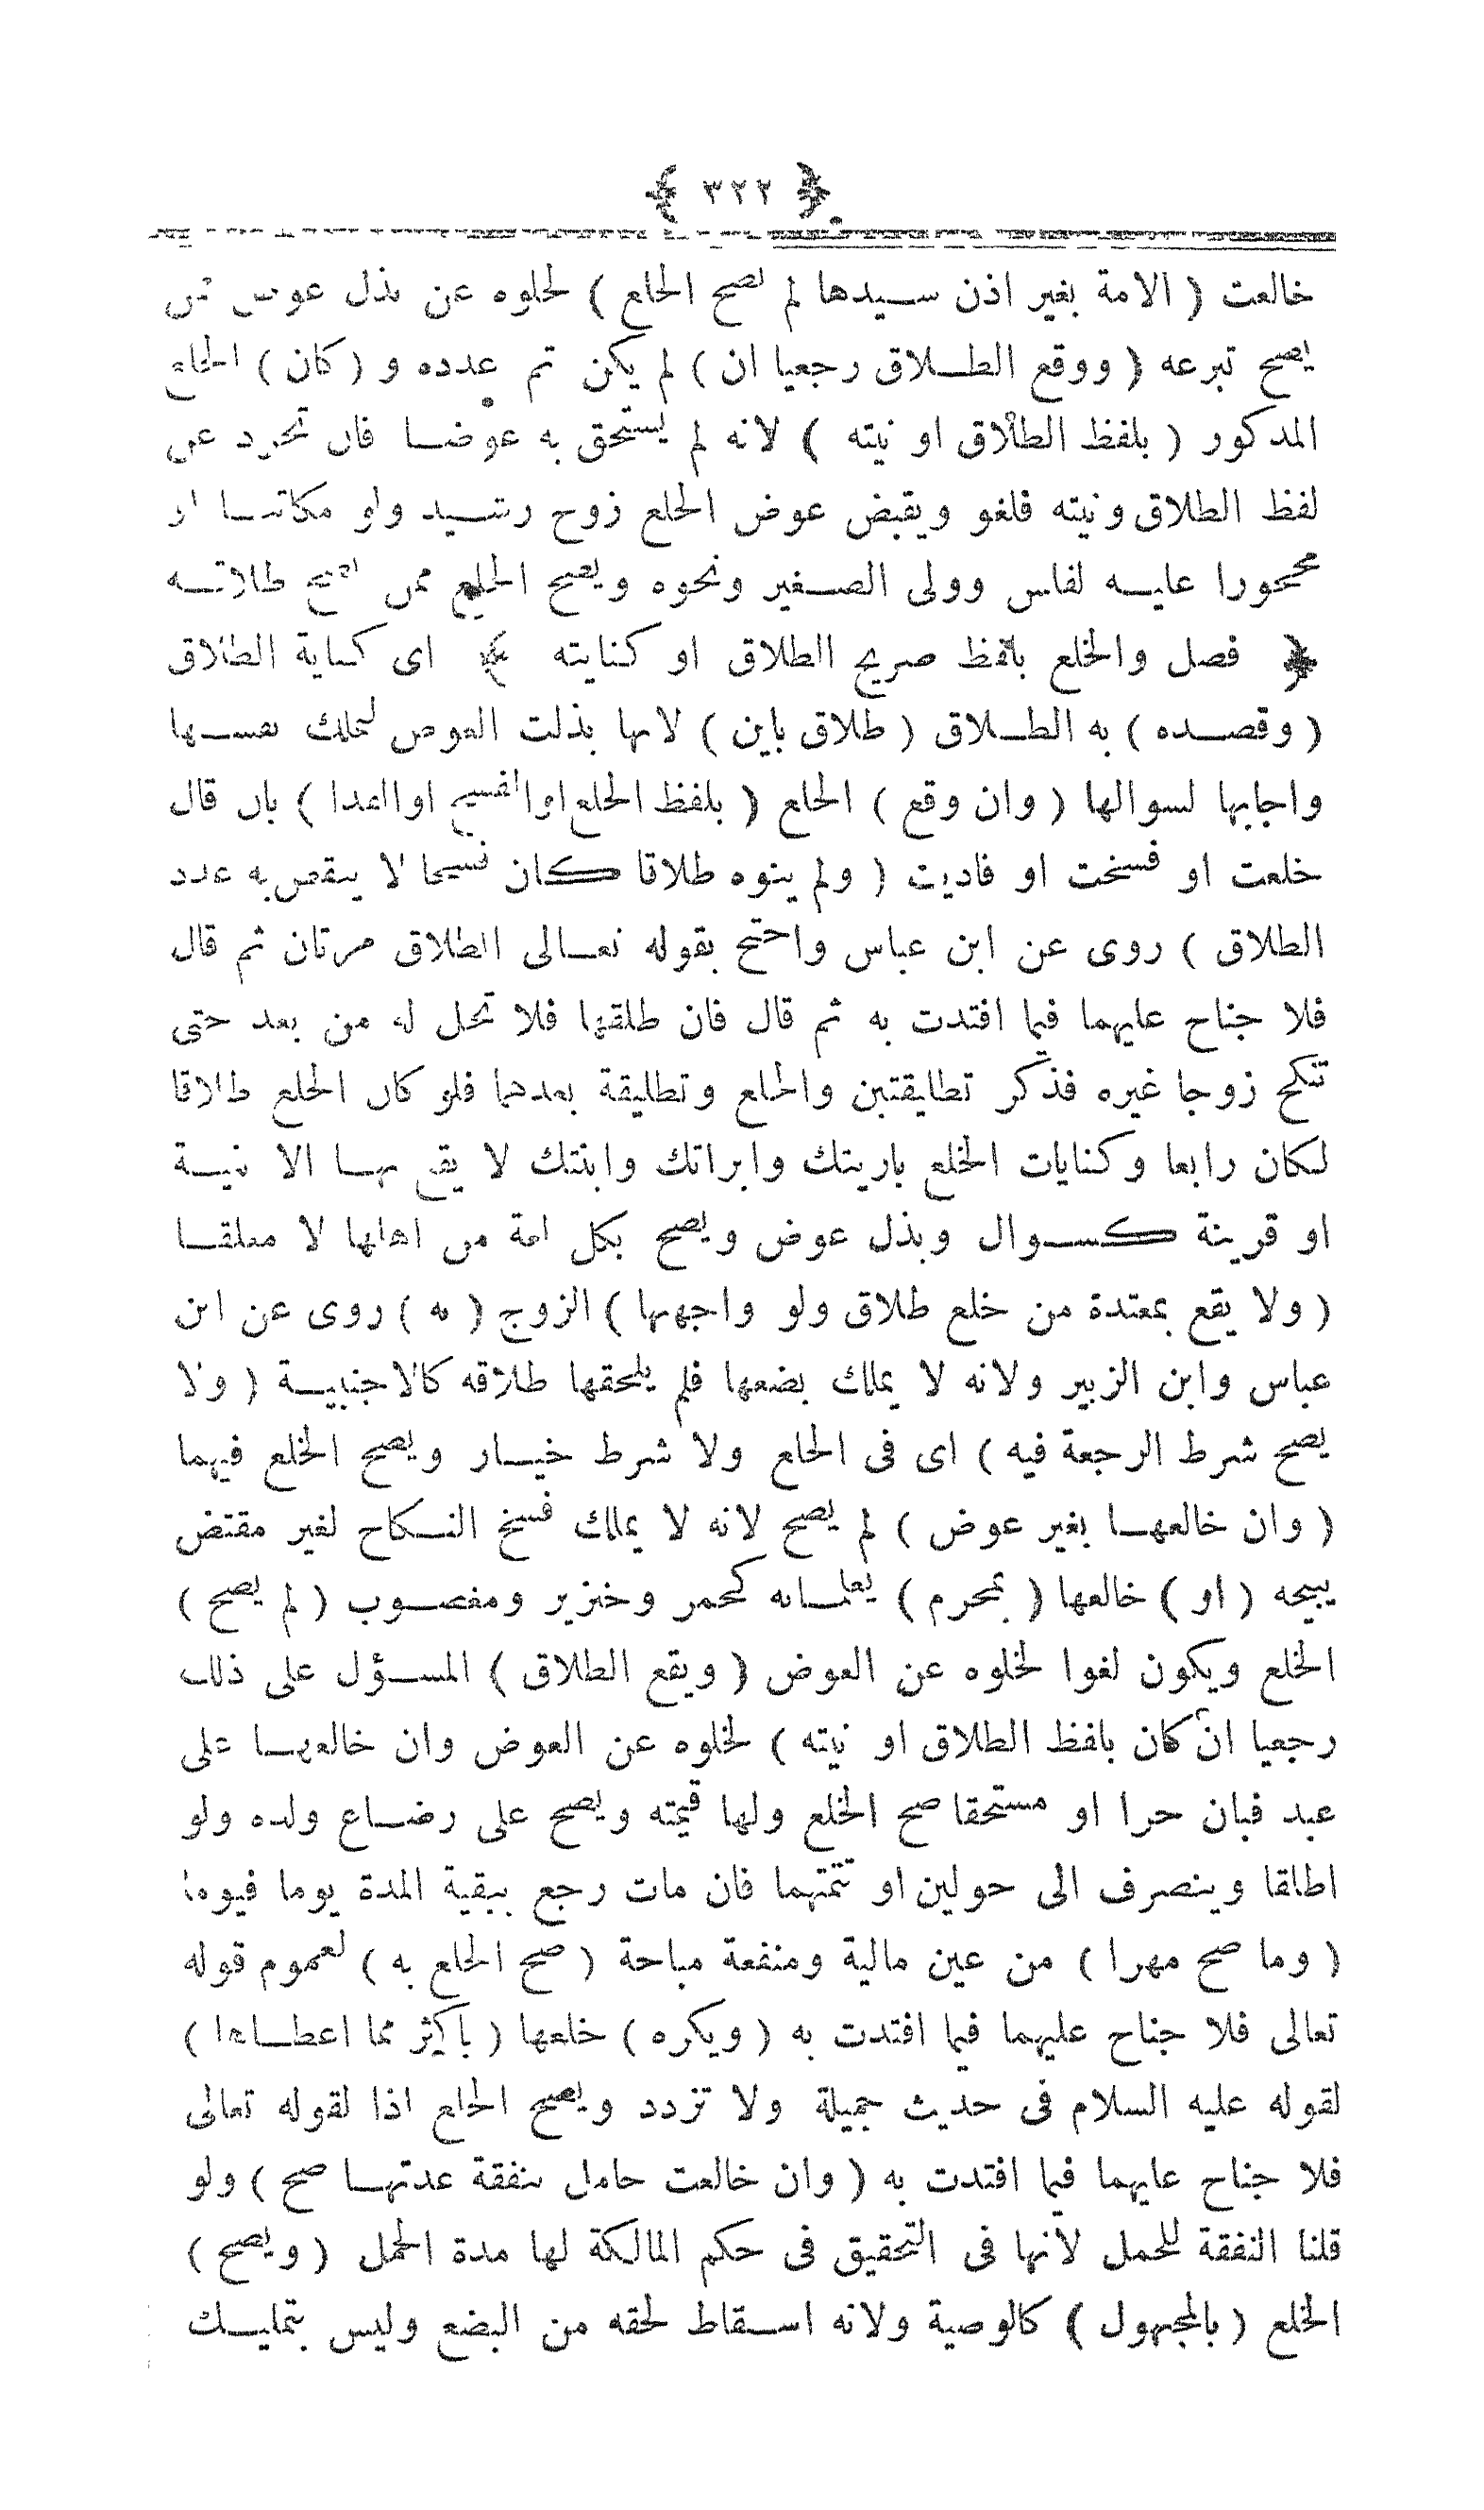 ﴿ ٣٢٢ ﴾
خالعت ( الامة بغير اذن سـيدها لم يصح الخلع ) لخلوه عن بذل عوض ممن
يصح تبرعه ( ووقع الطـلاق رجعيا ان ) لم يكن تم عدده و ( كان ) الخلع
المذكور ( بلفظ الطلاق او نيته ) لانه لم يستحق به عوضـا فان تجرد عن
لفظ الطلاق ونيته فلغو ويقبض عوض الخلع زوج رشـيد ولو مكاتبـا او
محجورا عليـه لفلس وولى الصـغير ونحوه ويصح الخلع ممن يصح طلاقـه
﴿ فصل والخلع بلفظ صريح الطلاق او كنايته ﴾ اى كناية الطلاق
( وقصـده ) به الطـلاق ( طلاق باين ) لانها بذلت العوض لتملك نفسـها
واجابها لسوالها ( وان وقع ) الخلع ( بلفظ الخلع او الفسخ او الفدا ) بان قال
خلعت او فسخت او فاديت ( ولم ينوه طلاقا كان فسخا لا ينقص به عدد
الطلاق ) روى عن ابن عباس واحتج بقوله تعـالى الطلاق مرتان ثم قال
فلا جناح عليهما فيما افتدت به ثم قال فان طلقها فلا تحل له من بعد حتى
تنكح زوجا غيره فذكر تطليقتين والخلع وتطليقة بعدهما فلو كان الخلع طلاقا
لكان رابعا وكنايات الخلع باريتك وابراتك وابنتك لا يقع بهـا الا بنيـة
او قرينة كسـوال وبذل عوض ويصح بكل لغة من اهلها لا معلقـا
( ولا يقع بمعتدة من خلع طلاق ولو واجهها ) الزوج ( به ) روى عن ابن
عباس وابن الزبير ولانه لا يملك بضعها فلم يلحقها طلاقه كالاجنبيـة ( ولا
يصح شرط الرجعة فيه ) اى فى الخلع ولا شرط خيـار ويصح الخلع فيهما
( وان خالعهـا بغير عوض ) لم يصح لانه لا يملك فسخ النـكاح لغير مقتض
يبيحه ( او ) خالعها ( بمحرم ) يعلمـانه كخمر وخنزير ومغصـوب ( لم يصح )
الخلع ويكون لغوا لخلوه عن العوض ( ويقع الطلاق ) المسـؤل على ذلك
رجعيا ان كان بلفظ الطلاق او نيته ) لخلوه عن العوض وان خالعهـا على
عبد فبان حرا او مستحقا صح الخلع ولها قيمته ويصح على رضـاع ولده ولو
اطلقا وينصرف الى حولين او تتمتهما فان مات رجع ببقية المدة يوما فيوما
( وما صح مهرا ) من عين مالية ومنفعة مباحة ( صح الخلع به ) لعموم قوله
تعالى فلا جناح عليهما فيما افتدت به ( ويكره ) خلعها ( باكثر مما اعطـاها )
لقوله عليه السلام فى حديث جميلة ولا تزدد ويصح الخلع اذا لقوله تعالى
فلا جناح عليهما فيما افتدت به ( وان خالعت حامل بنفقة عدتهـا صح ) ولو
قلنا النفقة للحمل لانها فى التحقيق فى حكم المالكة لها مدة الحمل ( ويصح )
الخلع ( بالمجهول ) كالوصية ولانه اسـقاط لحقه من البضع وليس بتمليـك